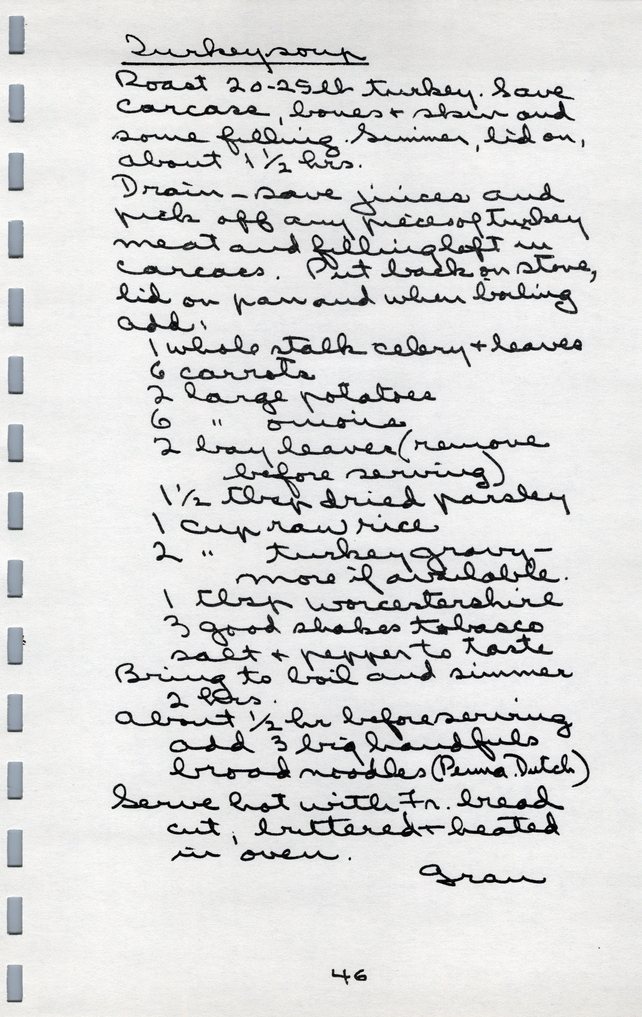 Turkey soup
Roast 20-25lb turkey. Save
carcase, bones + skin and
some filling. Simmer, lid on,
about 1 1/2 hrs.
Drain – save juices and
pick off any pieces of turkey
meat and filling left in
carcacs. Put back on stove,
lid on pan and when boiling
add:
1 whole stalk celery + leaves
6 carrots
2 large potatoes
6 " onions
2 bay leaves (remove
before serving)
1 1/2 tbsp dried parsley
1 cup raw rice
2 " turkey gravy –
more if available.
1 tbsp worcestershire
3 good shakes tobasco
salt + pepper to taste
Bring to boil and simmer
2 hrs.
About 1/2 hr before serving
add 3 big handfuls
broad noodles (Penna. Dutch)
Serve hot with Fr. bread
cut, buttered + heated
in oven.
Gran
46